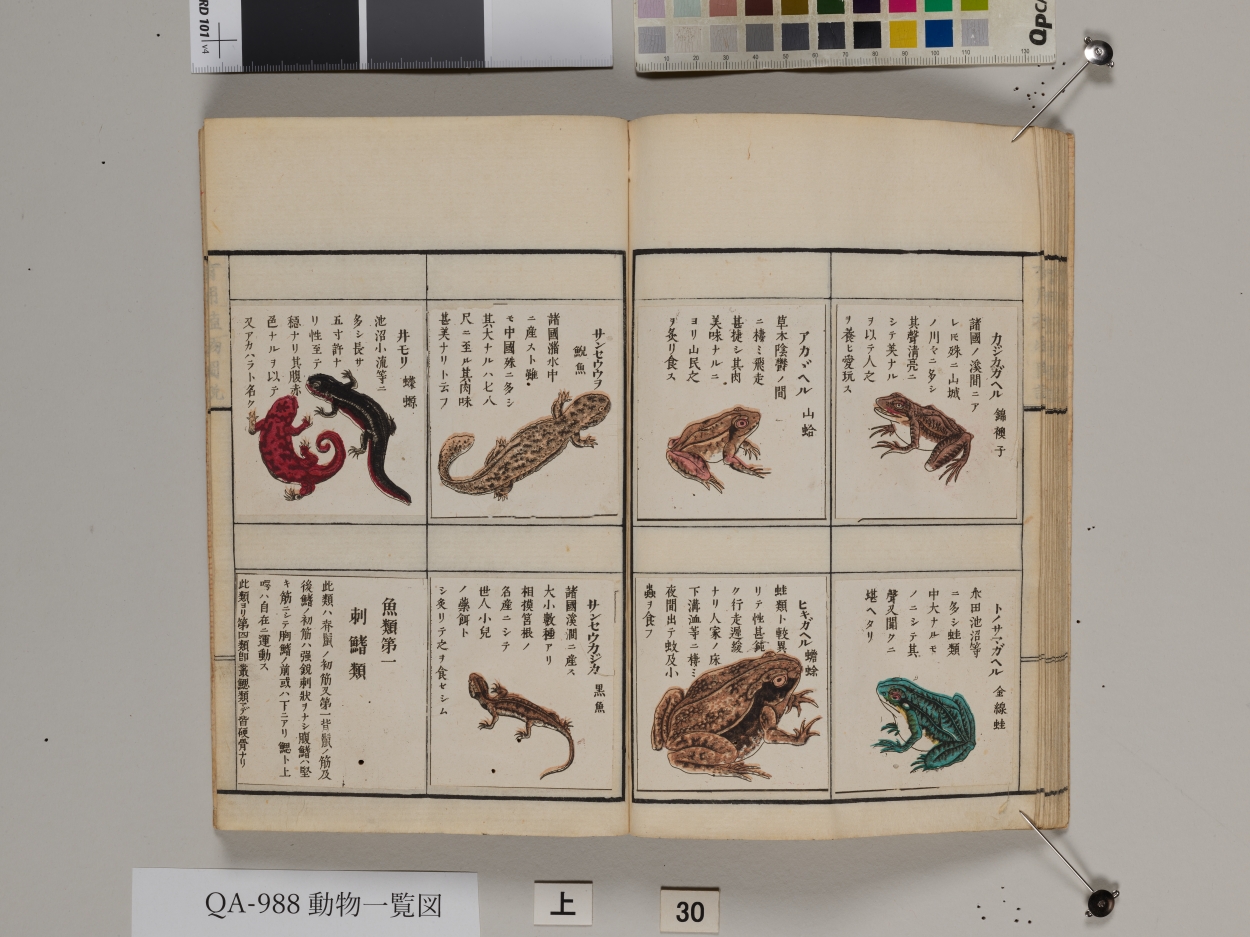 RD 101 v4
QPC
10 20 30 40 50 60 70 80 90 100 110 130
カジカガヘル 錦襖子
諸國ノ溪間ニア
レ𪜈殊ニ山城
ノ川々ニ多シ
其聲清亮ニ
シテ美ナル
ヲ以テ人之
ヲ養ヒ愛玩ス
アカヾヘル 山蛤
草木陰鬱ノ間
ニ棲ミ飛走
甚捷シ其肉
美味ナルニ
ヨリ山民之
ヲ炙リ食ス
トノサマガヘル 金線蛙
水田池沼等
ニ多シ蛙類
中大ナルモ
ノニシテ其
聲又聞クニ
堪ヘタリ
ヒキガヘル 蟾蜍
蛙類ト較異
リテ性甚鈍
ク行走遲緩
ナリ人家ノ床
下溝洫等ニ棲ミ
夜間出テ蚊及小
蟲ヲ食フ
サンセウウヲ
鯢魚
諸國溪水中
ニ産スト雖
モ中國殊ニ多シ
其大ナルハ七八
尺ニ至ル其肉味
甚美ナリト云フ
井モリ 蠑螈
池沼小流等ニ
多シ長サ
五寸許ナ
リ性至テ
穏ナリ其腹赤
色ナルヲ以テ
又アカハラト名ク
サンセウカジカ 黒魚
諸國溪澗ニ産ス
大小數種アリ
相摸筥根ノ
名産ニシテ
世人小兒
ノ藥餌ト
シ炙リテ之ヲ食セシム
魚類第一
刺鰭類
此類ハ脊鬣ノ初筋又第一背鬣ノ筋及
後鰭ノ初筋ハ强鋭刺狀ヲナシ腹鰭ハ堅
キ筋ニシテ胸鰭ノ前或ハ下ニアリ鰓ト上
腭ハ自在ニ運動ス
此類ヨリ第四類即叢鰓類マデ皆硬骨ナリ
QA-988 動物一覧図
上
30